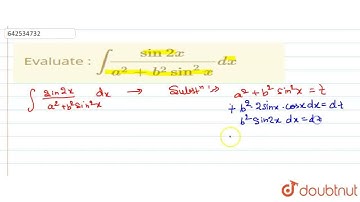 642534732
Evaluate : ∫ sin 2x / (a² + b² sin² x) dx
∫ sin2x / (a²+b²sin²x) dx → Substⁿ :→ a² + b² sin²x = t
+ b² 2sinx·cosx dx = dt
b² sin2x dx = dt
doubtnut